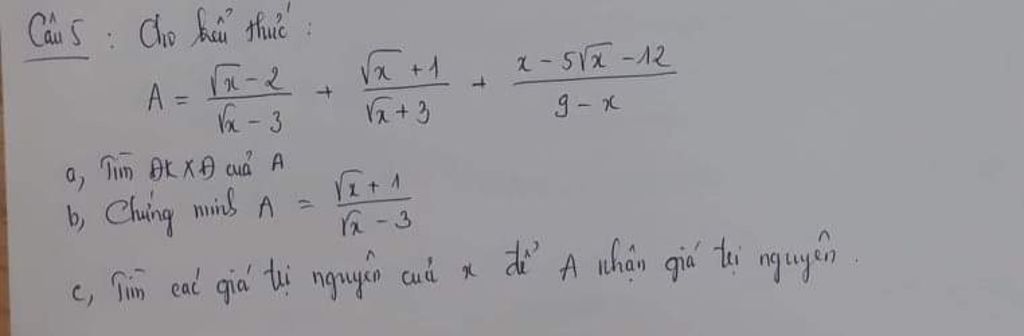 Câu 5 : Cho biểu thức :
A = \frac{\sqrt{x} - 2}{\sqrt{x} - 3} + \frac{\sqrt{x} + 1}{\sqrt{x} + 3} + \frac{x - 5\sqrt{x} - 12}{9 - x}
a, Tìm ĐKXĐ của A
b, Chứng minh A = \frac{\sqrt{x} + 1}{\sqrt{x} - 3}
c, Tìm các giá trị nguyên của x để A nhận giá trị nguyên .